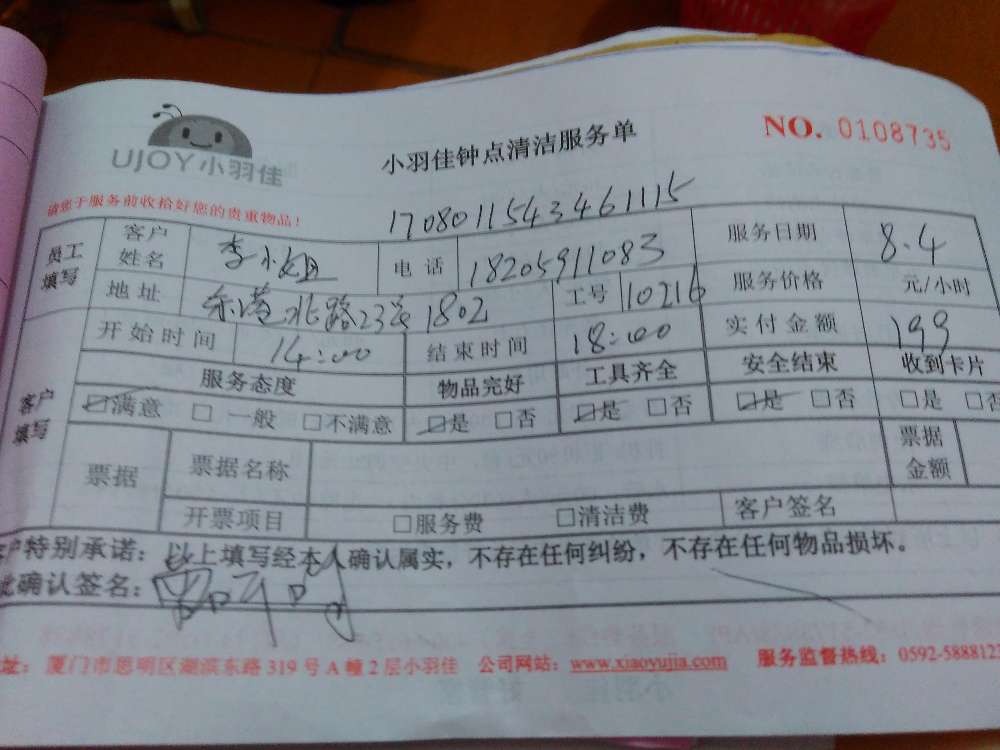 UJOY小羽佳
小羽佳钟点清洁服务单
NO. 0108735
请您于服务前收拾好您的贵重物品！
1708011543461115
员工填写 客户姓名 李小姐 电话 18205911083 服务日期 8.4
地址 北路23号1802 工号 10216 服务价格 元/小时
客户填写 开始时间 14:00 结束时间 18:00 实付金额 199
服务态度 物品完好 工具齐全 安全结束 收到卡片
☑满意 □一般 □不满意 ☑是 □否 ☑是 □否 ☑是 □否 □是 □否
票据 票据名称 票据金额
开票项目 □服务费 □清洁费 客户签名
客户特别承诺：以上填写经本人确认属实，不存在任何纠纷，不存在任何物品损坏。
此确认签名：
地址：厦门市思明区湖滨东路319号A幢2层小羽佳 公司网站：www.xiaoyujia.com 服务监督热线：0592-5888123